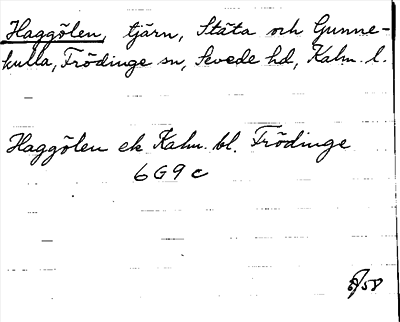 Haggölen, tjärn, Stäta och Gunne-
kulla, Frödinge sn, Sevede hd, Kalm. l.
Haggölen ek. Kalm. bl. Frödinge
6G9c